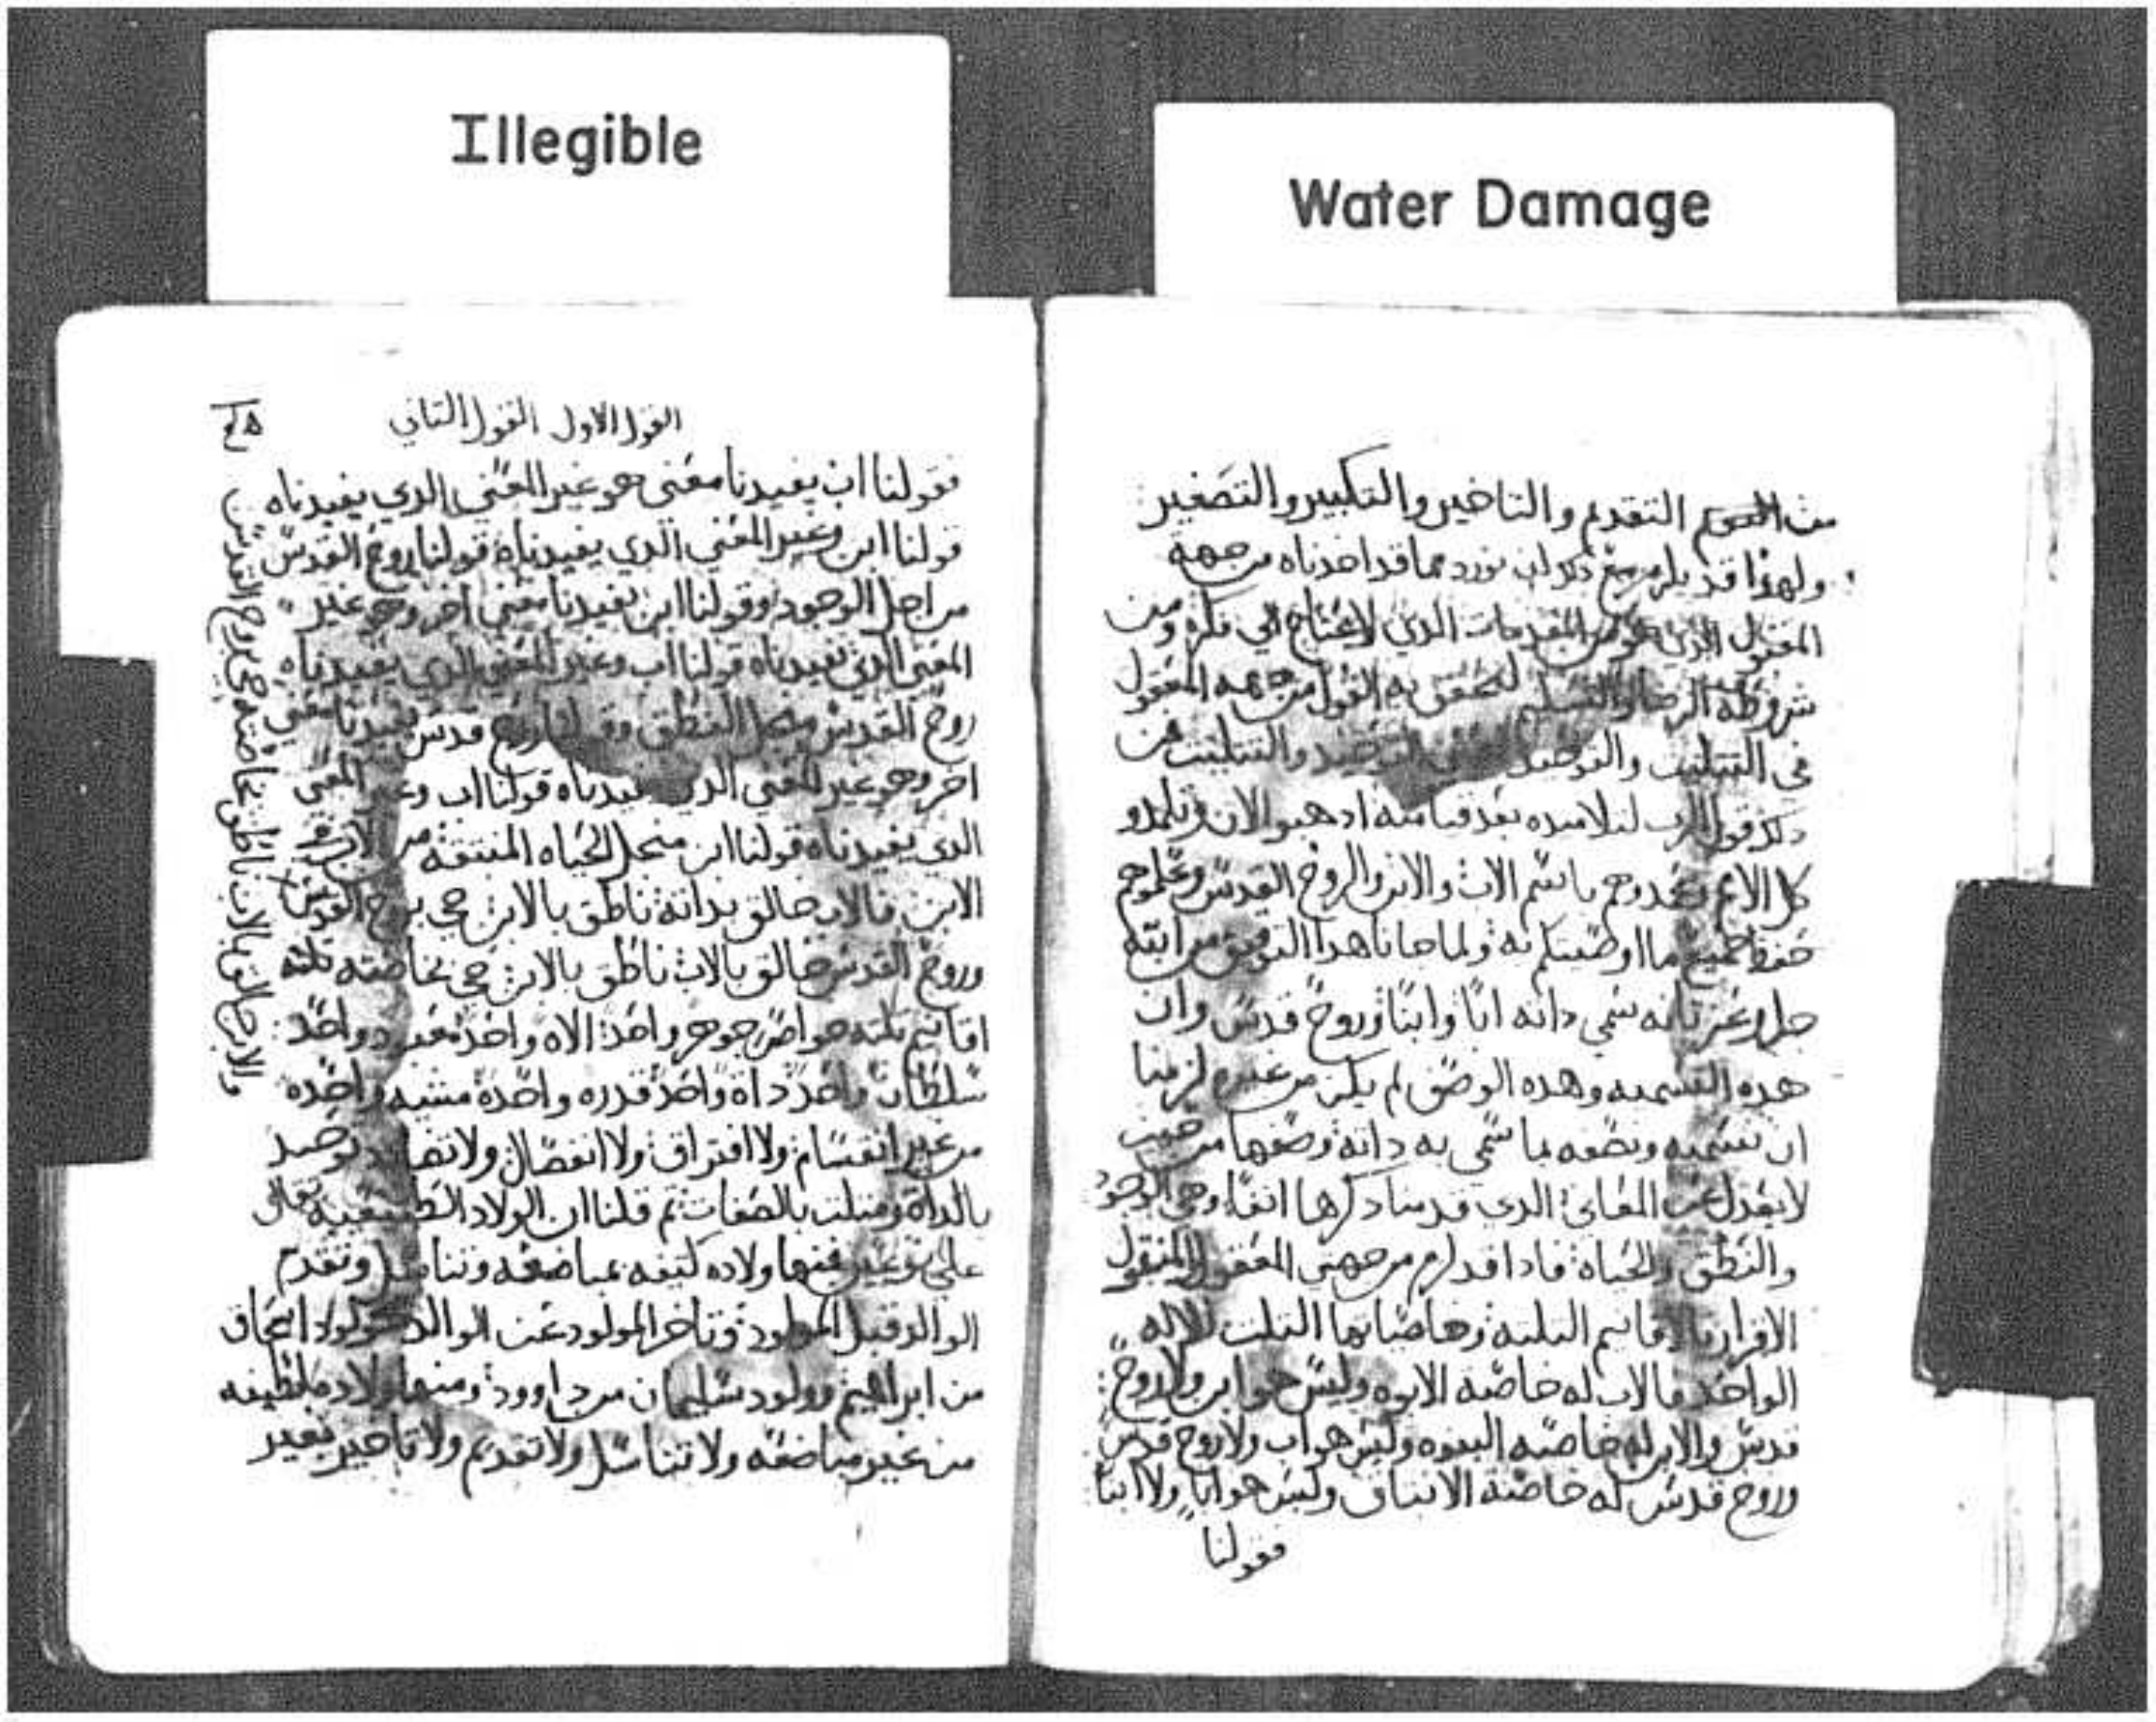 Illegible
Water Damage
التقديم والتاخير والتكبير والتصغير
ولهدا قد يلزم مع دكر ان نورد مما قد اخدناه من جهة
المقول الدي هو من المقدمات الدي لا يحتاج الي فكره ومن
شروطه الرضا والتسليم لتحقق به القول من جهه المعقول
في التتليت والتوحيد التوحيد والتتليت من
دلك قول الرب لتلاميده بعد قيامته ادهبو الان وتلمدو
كل الامم وعمدوهم باسم الاب والابن والروح القدس وعلموهم
حفظ جميع ما اوصيتكم به ولما جانا هدا التوقيق من ابنه
جل وعز بانه سمي داته ابًا وابنًا وروح قدس وان
هده التسميه وهده الوصف لم يكن من غيره لزمنا
ان نسميه ونصفه بما سمي به داته وصفها من حيت
لا نعدل عن المعاني الدي قدمنا دكرها انفًا وهي الوجود
والنطق والحياة فادا قد لزم من جهتي المعقول والمنقول
الاقرار بالاقانيم التلته وخاصياتها التلت للاله
الواحد فالاب له خاصة الابوه وليس هو ابن ولا روح
قدس والابن له خاصه البنوه وليس هو اب ولا روح قدس
وروح قدس له خاصة الانبتاق وليس هو ابًا ولا ابنًا
فقولنا
القول الاول القول التاني
فقولنا اب يفيدنا معني هو غير المعني الدي يفيدناه
قولنا ابن وغير المعني الدي يفيدناه قولنا روح القدس
من اجل الوجود وقولنا ابن يفيدنا معني اخر وهو غير
المعني الدي يفيدناه قولنا اب وغير المعني الدي يفيدناه
روح القدس من اجل النطق وقولنا روح قدس يفيدنا معني
اخر وهو غير المعني الدي يفيدناه قولنا اب وغير المعني
الدي يفيدناه قولنا ابن من اجل الحياه المنبتقه من
الابن فالاب خالق بداته ناطق بالابن حي بروح القدس
وروح القدس خالق بالاب ناطق بالابن حي بخاصته تلته
اقانيم تلته خواص جوهر واحد الاه واحد معبود واحد
سلطان واحد داة واحد قدره واحده مشيه واحده
من غير انقسام ولا افتراق ولا انفصال ولا توحيد
بالداة ومتلت بالصفات تم قلنا ان الولاد الطبيعيه تقال
علي نوعين فمنها ولاده كتيفه بمباضعه وتناسل وتقدم
الوالد قبل المولود وتاخر المولود عن الوالد كمولود اسحاق
من ابراهيم وولود سليمان من داوود ومنها ولاده لطيفه
من غير مباضعه ولا تناسل ولا تقديم ولا تاخير بغير
والابن خالق بالاب ناطق بخاصته حي بروح القدس